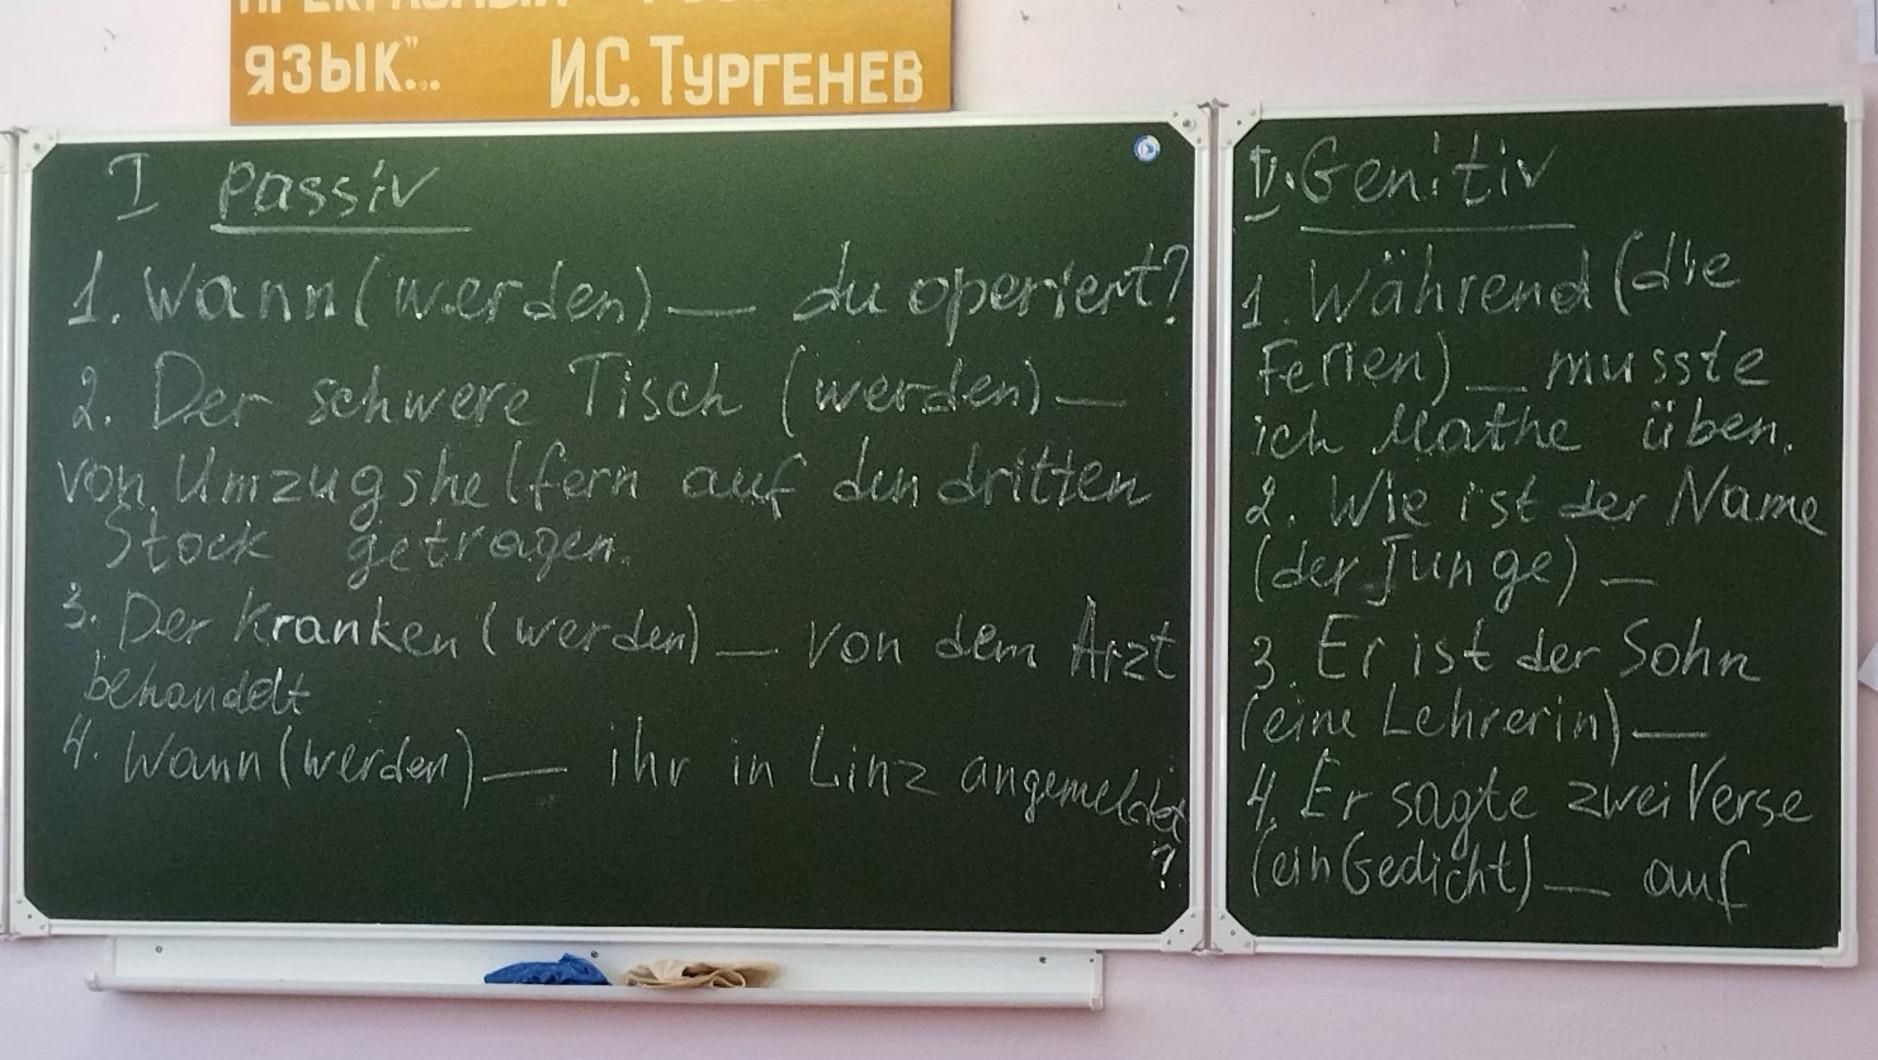 ЯЗЫК"... И.С. ТУРГЕНЕВ
I Passiv
1. Wann (werden) __ du operiert?
2. Der schwere Tisch (werden) __
von Umzugshelfern auf den dritten
Stock getragen.
3. Der Kranken (werden) __ von dem Arzt
behandelt
4. Wann (werden) __ ihr in Linz angemeldet
?
II. Genitiv
1. Während (die
Ferien) __ musste
ich Mathe üben.
2. Wie ist der Name
(der Junge) __
3. Er ist der Sohn
(eine Lehrerin) __
4. Er sagte zwei Verse
(ein Gedicht) __ auf